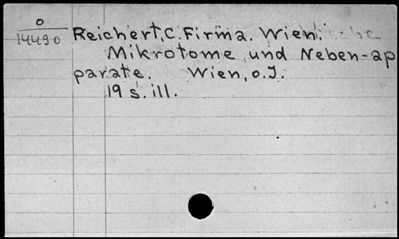 0
14490
Reichert, C. Firma. Wien.
Mikrotome und Neben-ap
parate. Wien, o.J.
19 s. ill.